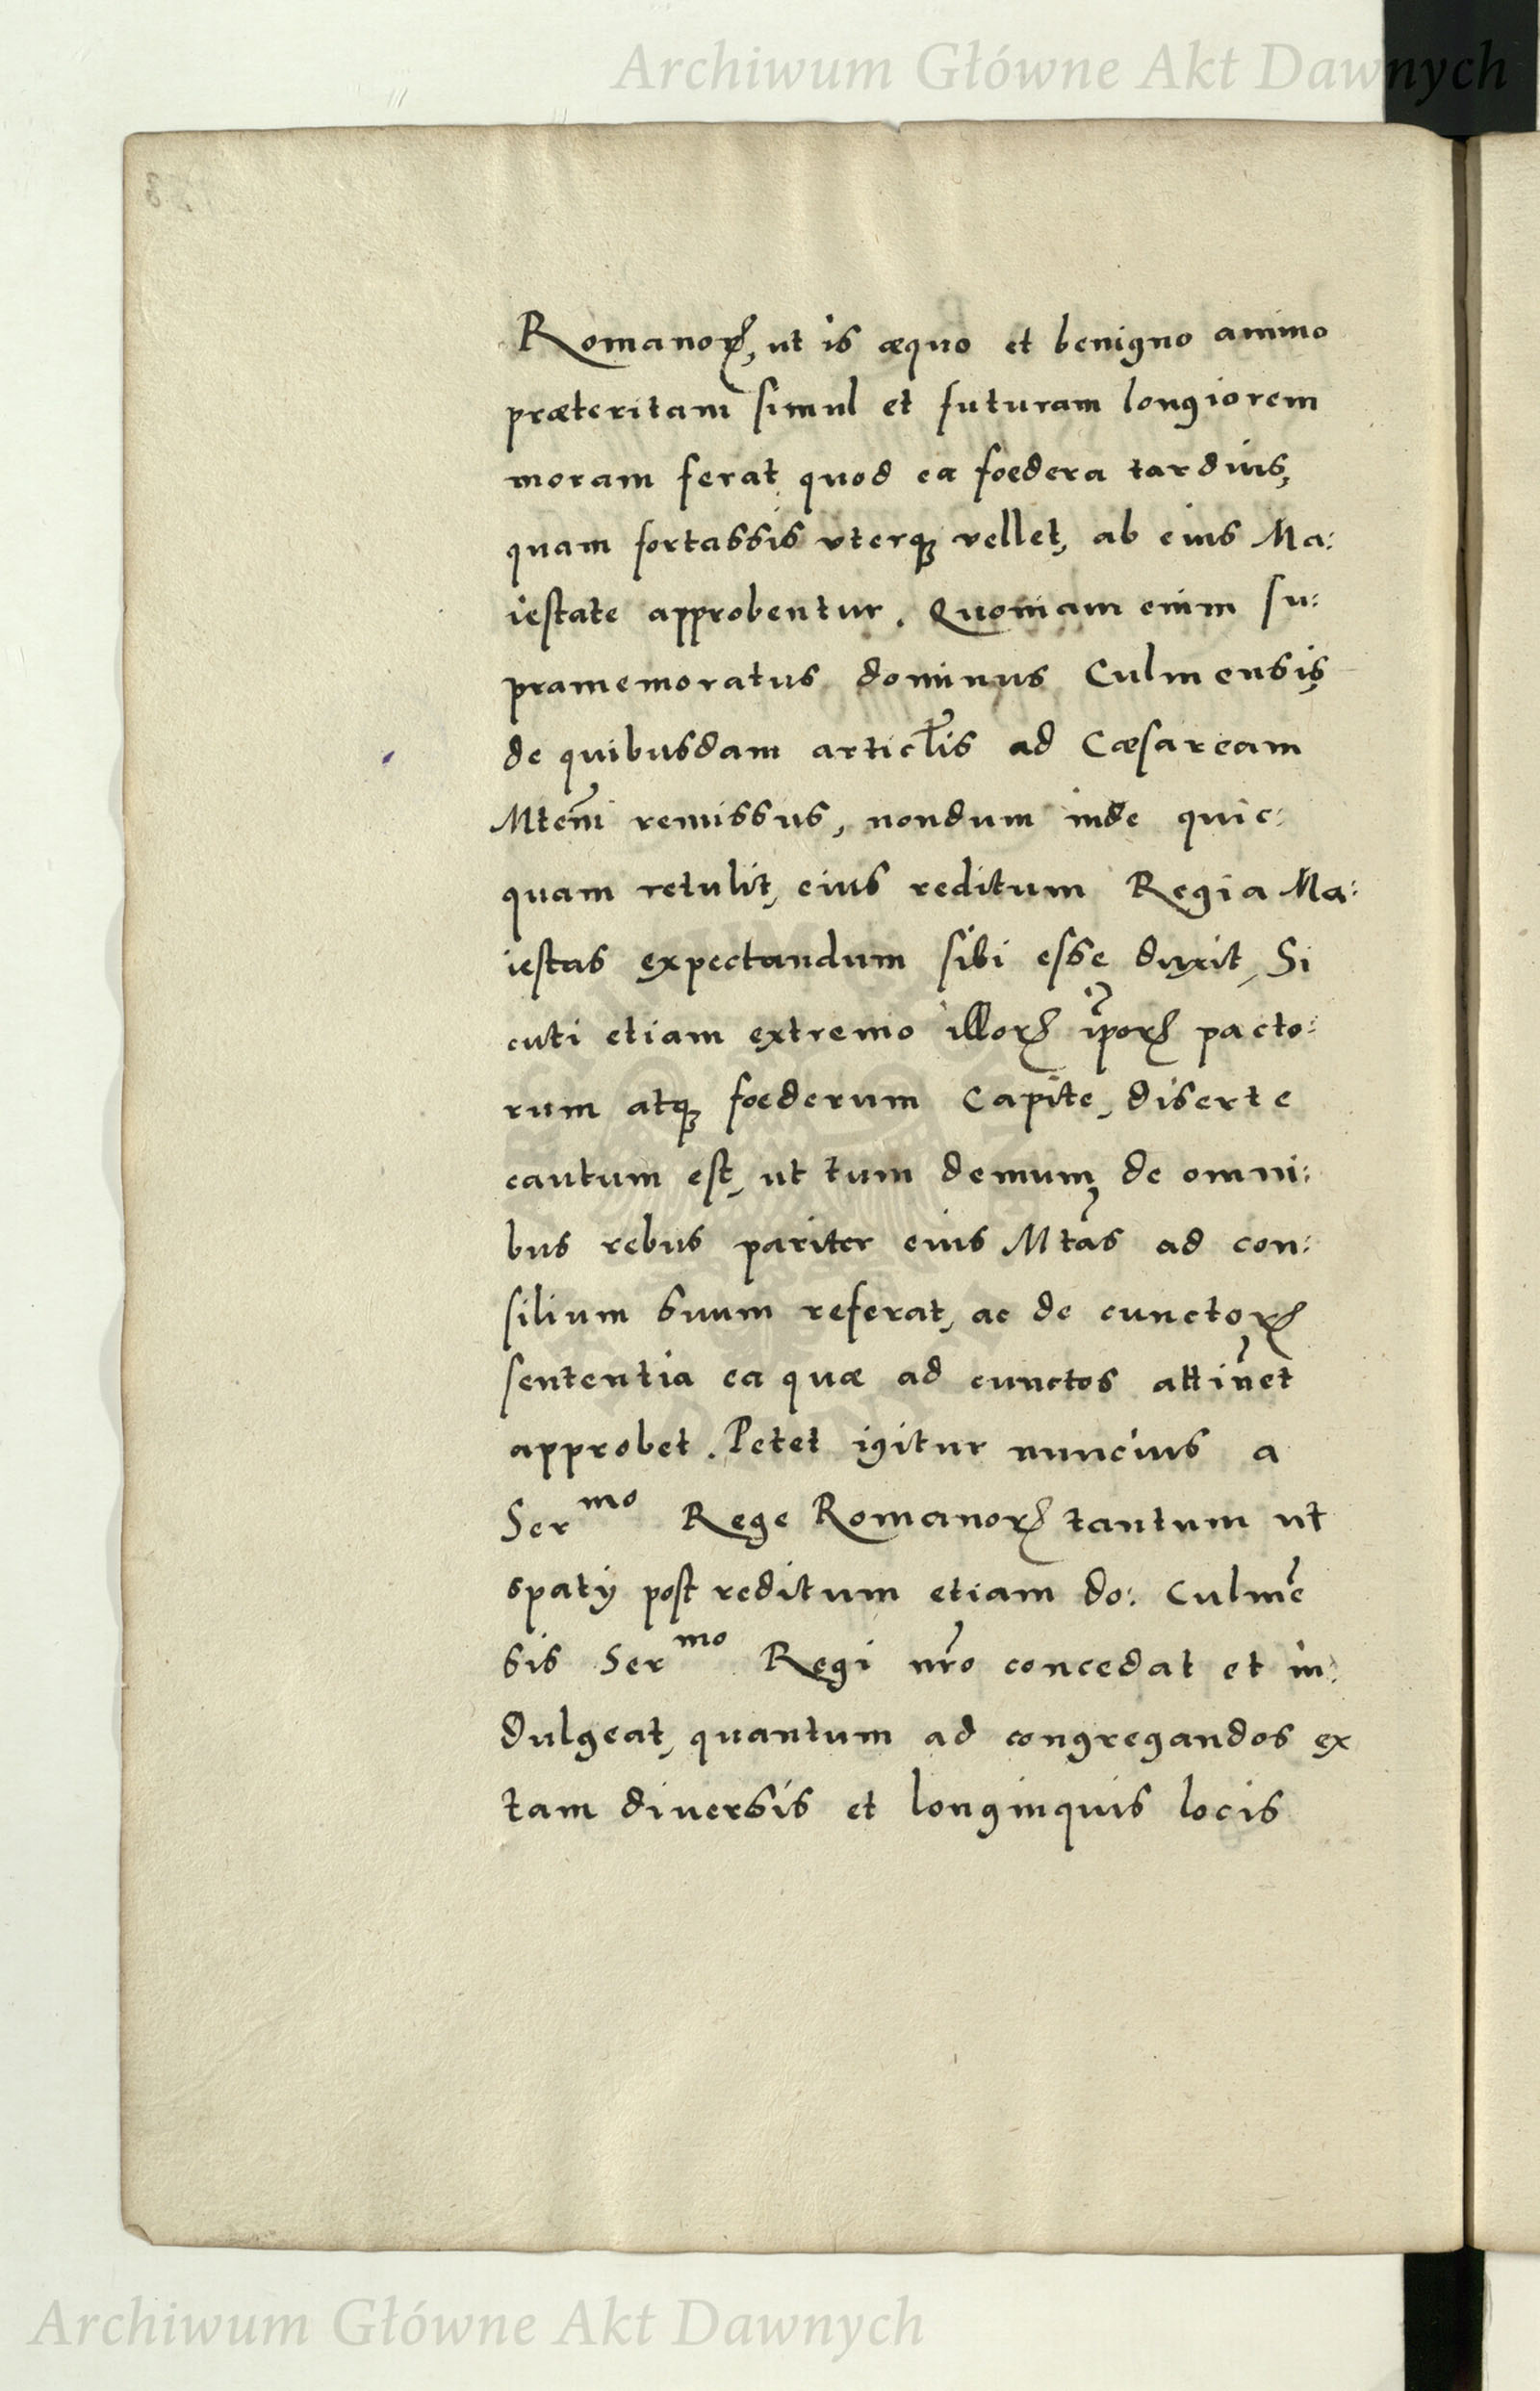 Archiwum Główne Akt Dawnych
Romanorꝝ, ut is æquo et benigno animo
præteritam simul et futuram longiorem
moram ferat quod ea foedera tardius,
quam fortassis vterqꝫ vellet, ab eius Ma:
iestate approbentur. Quoniam enim su:
pramemoratus dominus Culmensis,
de quibusdam articl̃is ad Cæsaream
Mtem̃ remissus, nondum inde quic:
quam retulit, eius reditum Regia Ma:
iestas expectandum sibi esse duxit, Si
cuti etiam extremo illorꝝ ip̃orꝝ pacto:
rum atqꝫ foederum Capite, diserte
cautum est, ut tum demum, de omni:
bus rebus pariter eius Mtas̃ ad con:
silium suum referat, ac de cunctorꝝ
sententia ea quæ ad cunctos attiñet
approbet. Petet igitur nuncius a
Serᵐᵒ Rege Romanorꝝ tantum ut
spatij post reditum etiam do: Culmẽ
sis Serᵐᵒ Regi nr̃o concedat et in:
dulgeat, quantum ad congregandos ex
tam diversis et longinquis locis
Archiwum Główne Akt Dawnych